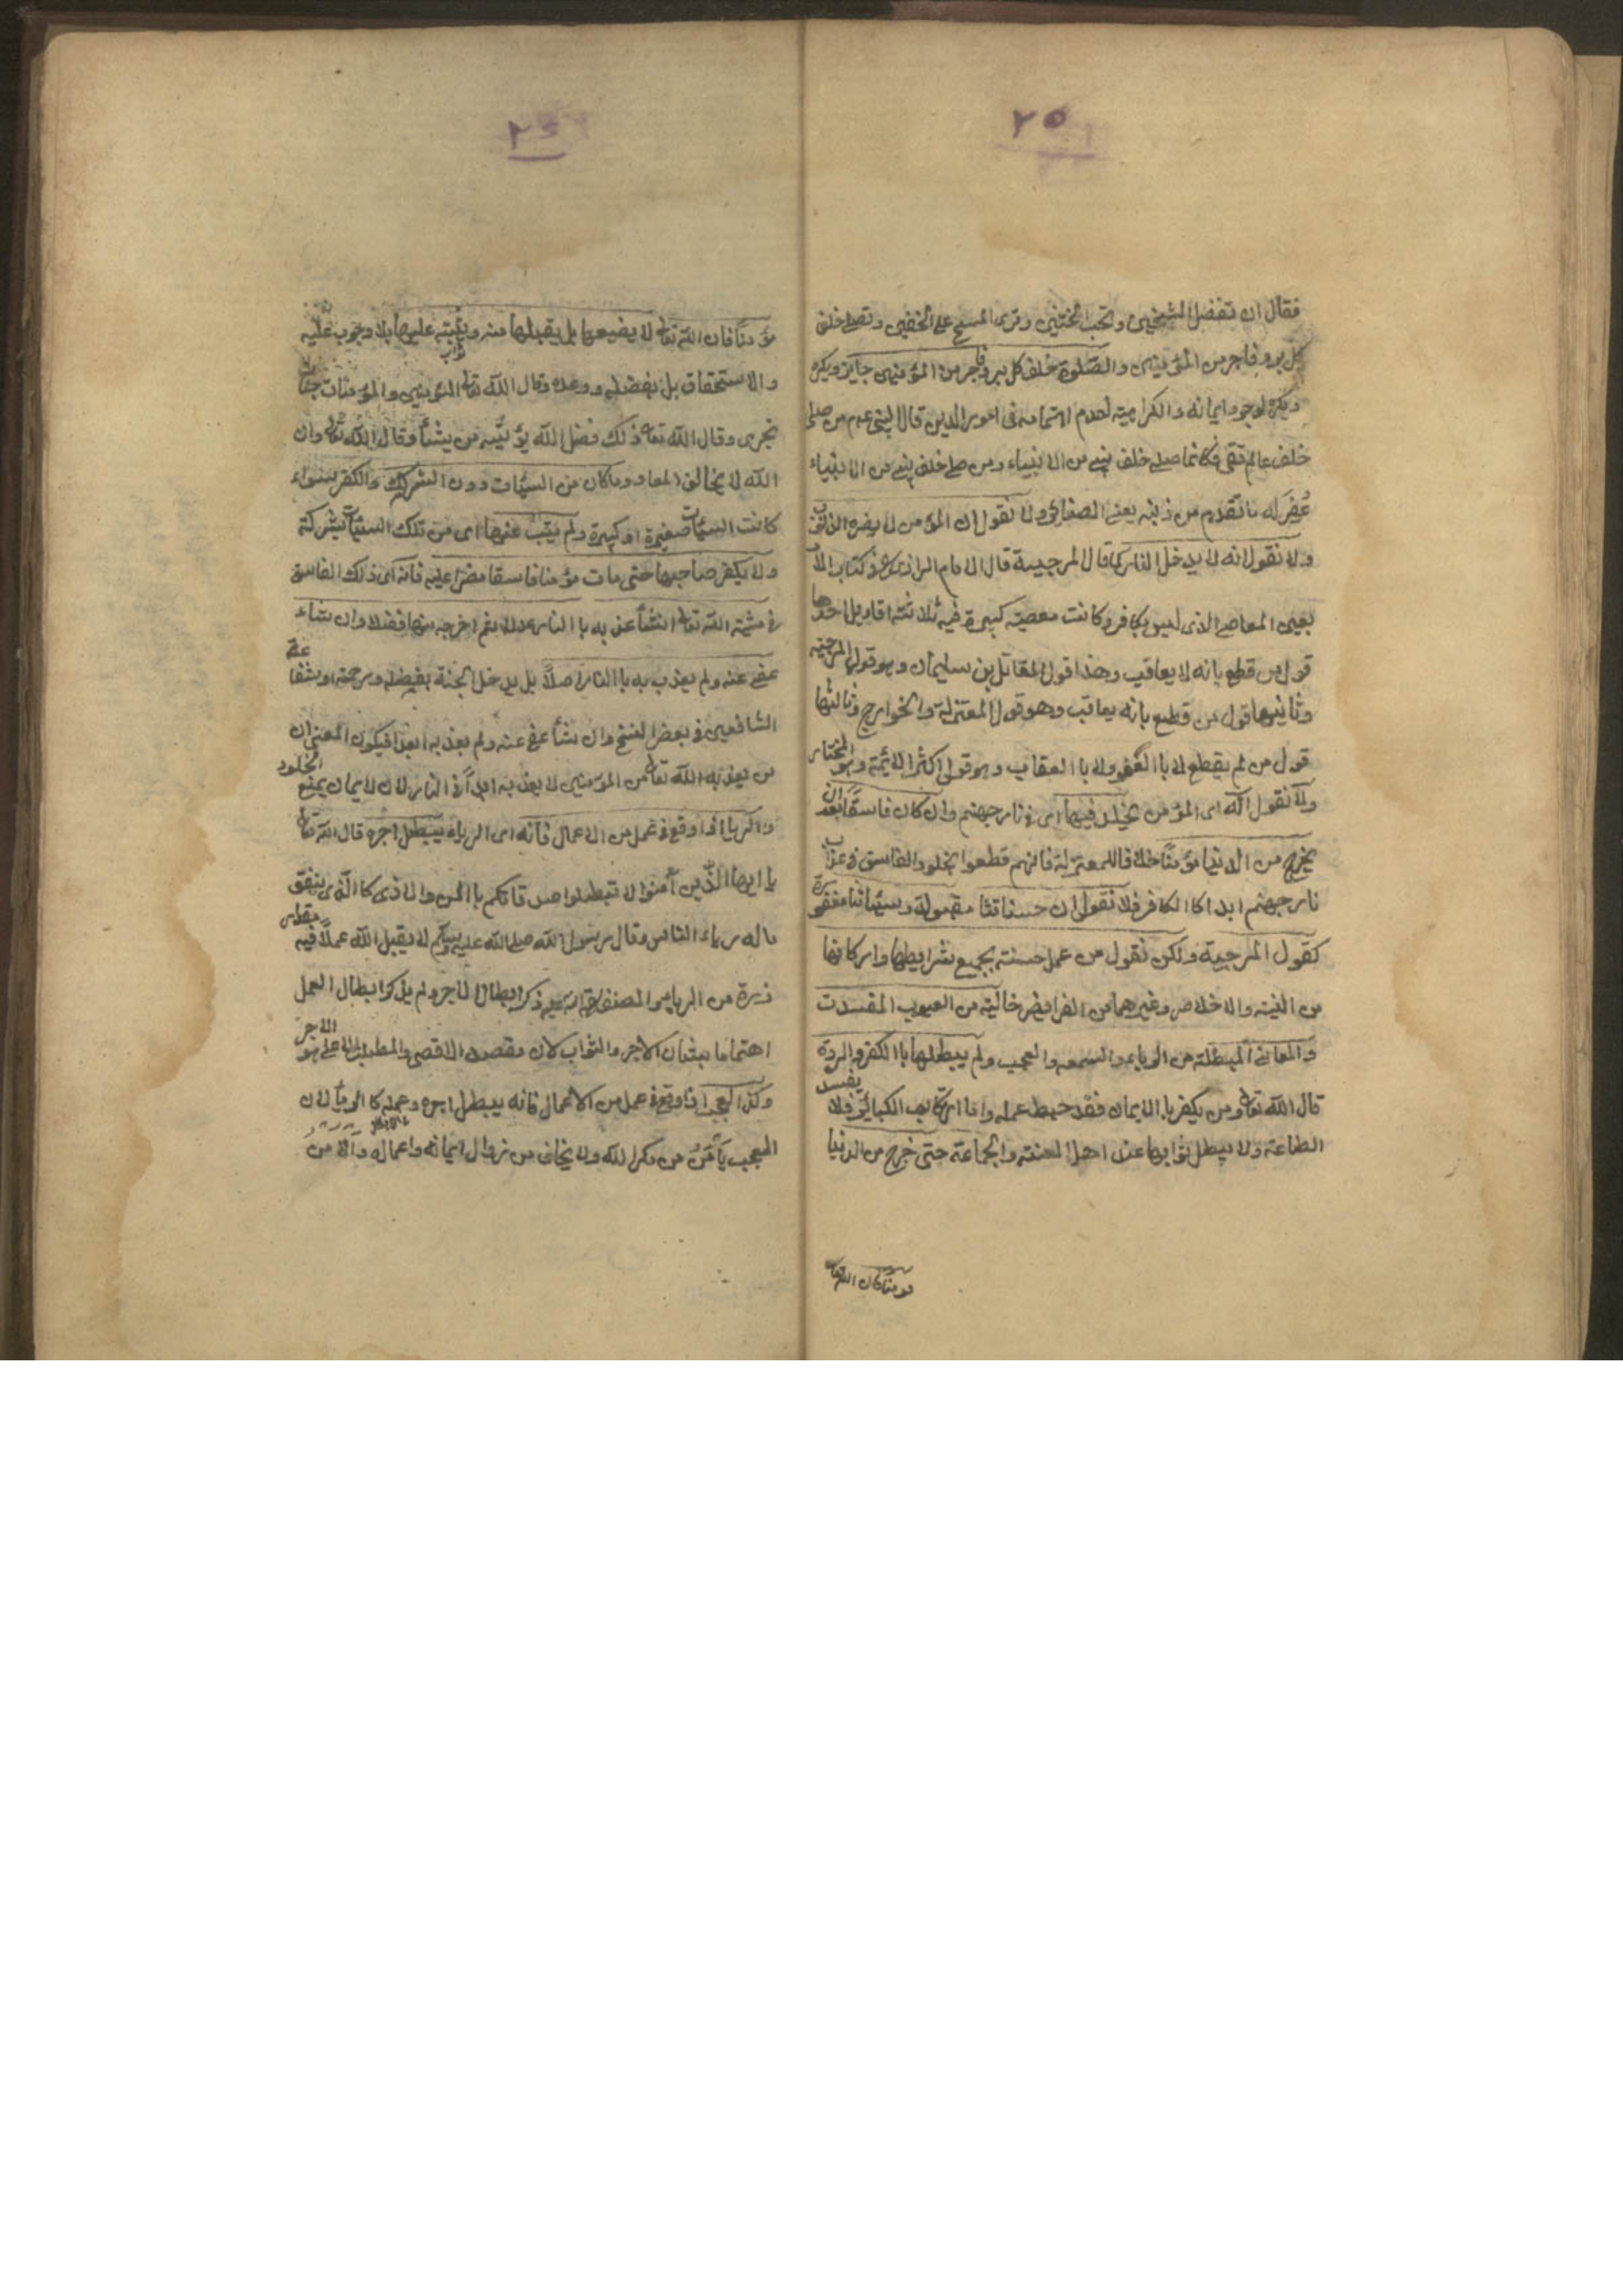 ٢٥
فقال ان تفضل الشيخين وتحب الختنين وترى المسح على الخفين وتصلى خلف
كل بر وفاجر من المؤمنين والصلوة خلف كل بر وفاجر من المؤمنين جايز ويكره
ويكره لوجود ايمانه والكراهية لعدم اهتمامه فى امور الدين قال النبى عم من صلى
خلف عالم تقى فكانما صلى خلف نبى من الانبياء ومن صلى خلف نبى من الانبياء
غفر له ما تقدم من ذنبه يعنى الصغاير ولا نقول ان المؤمن لا يضره الذنوب
ولا نقول انه لا يدخل النار كما قال المرجية قال الامام الرازى فى كتاب
يعنى المعاصى الذى ليس بكافر وكانت معصيته كبيرة فيه ثلاثة اقاويل احدها
قول من قطع بانه لا يعاقب وهذا قول المقاتل بن سليمان وهو قول المرجية
وثانيها قول من قطع بانه يعاقب وهو قول المعتزلة والخوارج وثالثها
قول من لم يقطع لا با العفو ولا با العقاب وهو قول اكثر الائمة وهو المختار
ولا نقول انه اى المؤمن يخلد فيها اى فى نار جهنم وان كان فاسقا بعد ان
يخرج من الدنيا مؤمنا خلافا للمعتزلة فانهم قطعوا بخلود الفاسق فى عذاب
نار جهنم ابدا كا الكافر فلا نقول ان حسناتنا مقبولة وسيئاتنا مغفورة
كقول المرجية ولكن نقول من عمل حسنة بجميع شرايطها واركانها
من النية والاخلاص وغيرهما من الفرايض خالية من العيوب المفسدت
والمعانى المبطلة من الرياء والسمعه والعجب ولم يبطلها با الكفر والردة
قال الله تعا ومن يكفر با الايمان فقد حبط عمله واما ارتكاب الكبائر فلا يفسد
الطاعة ولا يبطل ثوابها عند اهل السنة والجماعة حتى خرج من الدنيا
مؤمنا فان الله تعا
مؤمنا فان الله تعا لا يضيعها بل يقبلها منه ويثيبه عليها بلا وجوب عليه
والاستحقاق بل بفضله ووعده وقال الله تعا المؤمنين والمؤمنات جنات
تجرى وقال الله تعا ذلك فضل الله يؤتيه من يشأ وقال الله تعا وان
الله لا يخالف المعاد وما كان من السيئات دون الشرك والكفر سواء
كانت السيئات صغيرة او كبيرة ولم يتب عنها اى من تلك السيئات
ولا يكفر صاحبها حتى مات مؤمنا فاسقا مضرا عليه فانه اى ذلك الفاسق
فى مشية الله تعا انشأ عذبه با النار عدلا ثم اخرجه منها فضلا وان شاء
عفى عنه ولم يعذب به با النار اصلا بل يدخل الجنة بفضله ورحمته او شفاعة
الشافعين فى بعض النسخ وان شأ عفى عنه ولم يعذبه ابدا فيكون المعنى ان
من يعذبه الله تعا من المؤمنين لا يعذبه ابدا فى النار لان لايمان يمنع الخلود
والريا اذا وقع فى عمل من الاعمال فانه اى الرياء يبطل اجره قال الله تعا
يا ايها الذين آمنوا لا تبطلوا صدقاتكم با المن والاذى كا الذى ينفق
ماله رياء الناس وقال رسول الله صلى الله عليه وسلم لا يقبل الله عملا فيه مقدار
ذرة من الريا والمصنف ذكر ابطال الاجر ولم يذكر ابطال العمل
اهتماما بشان الاجر والثواب لان مقصود الاقصى والمطلب الاعلى هو الاجر
وكذا العجب اذا وقع فى عمل من الاعمال فانه يبطل اجره وعمله كا الريأ لان
المعجب يأمن من مكر الله ولا يخاف من زوال ايمانه واعماله والامن